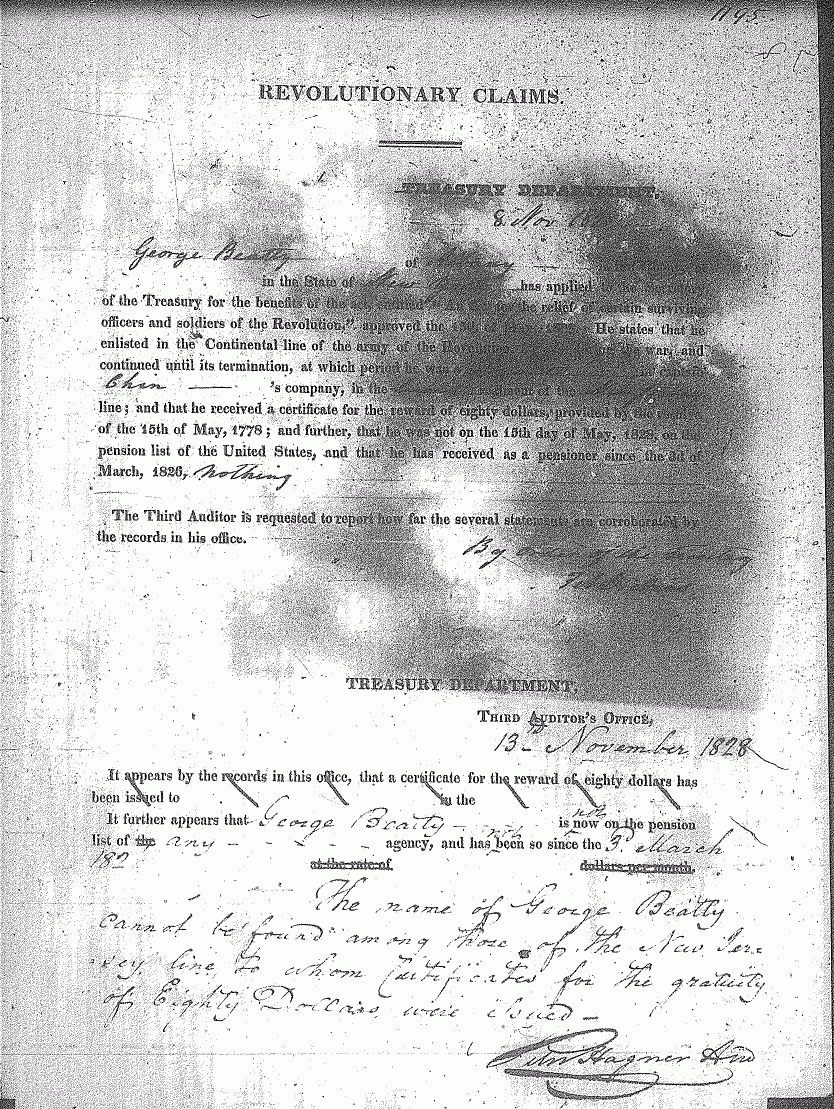 1195
REVOLUTIONARY CLAIMS.
TREASURY DEPARTMENT,
8 Nov
George Beatty of
in the State of New has applied to the
of the Treasury for the benefits of the act, entitled "An act for the relief of certain surviving
officers and soldiers of the Revolution," approved the He states that he
enlisted in the Continental line of the army of the Revolution, the war, and
continued until its termination, at which period he was
Chin 's company, in the regiment of the
line; and that he received a certificate for the reward of eighty dollars, provided by the
of the 15th of May, 1778; and further, that he was not on the 15th day of May, 1828, on the
pension list of the United States, and that he has received as a pensioner since the 3d of
March, 1826, nothing
The Third Auditor is requested to report how far the several statements are corroborated by
the records in his office.
By order of the Secretary
TREASURY DEPARTMENT,
THIRD AUDITOR'S OFFICE,
13th November 1828
It appears by the records in this office, that a certificate for the reward of eighty dollars has
been issued to in the
It further appears that George Beatty - is now not on the pension
list of the any - - - - - agency, and has not been so since the 3d March
182
at the rate of dollars per month.
The name of George Beatty
cannot be found among those of the New Jer=
sey line to whom Certificates for the gratuity
of Eighty Dollars, were issued -
Peter Hagner Aud